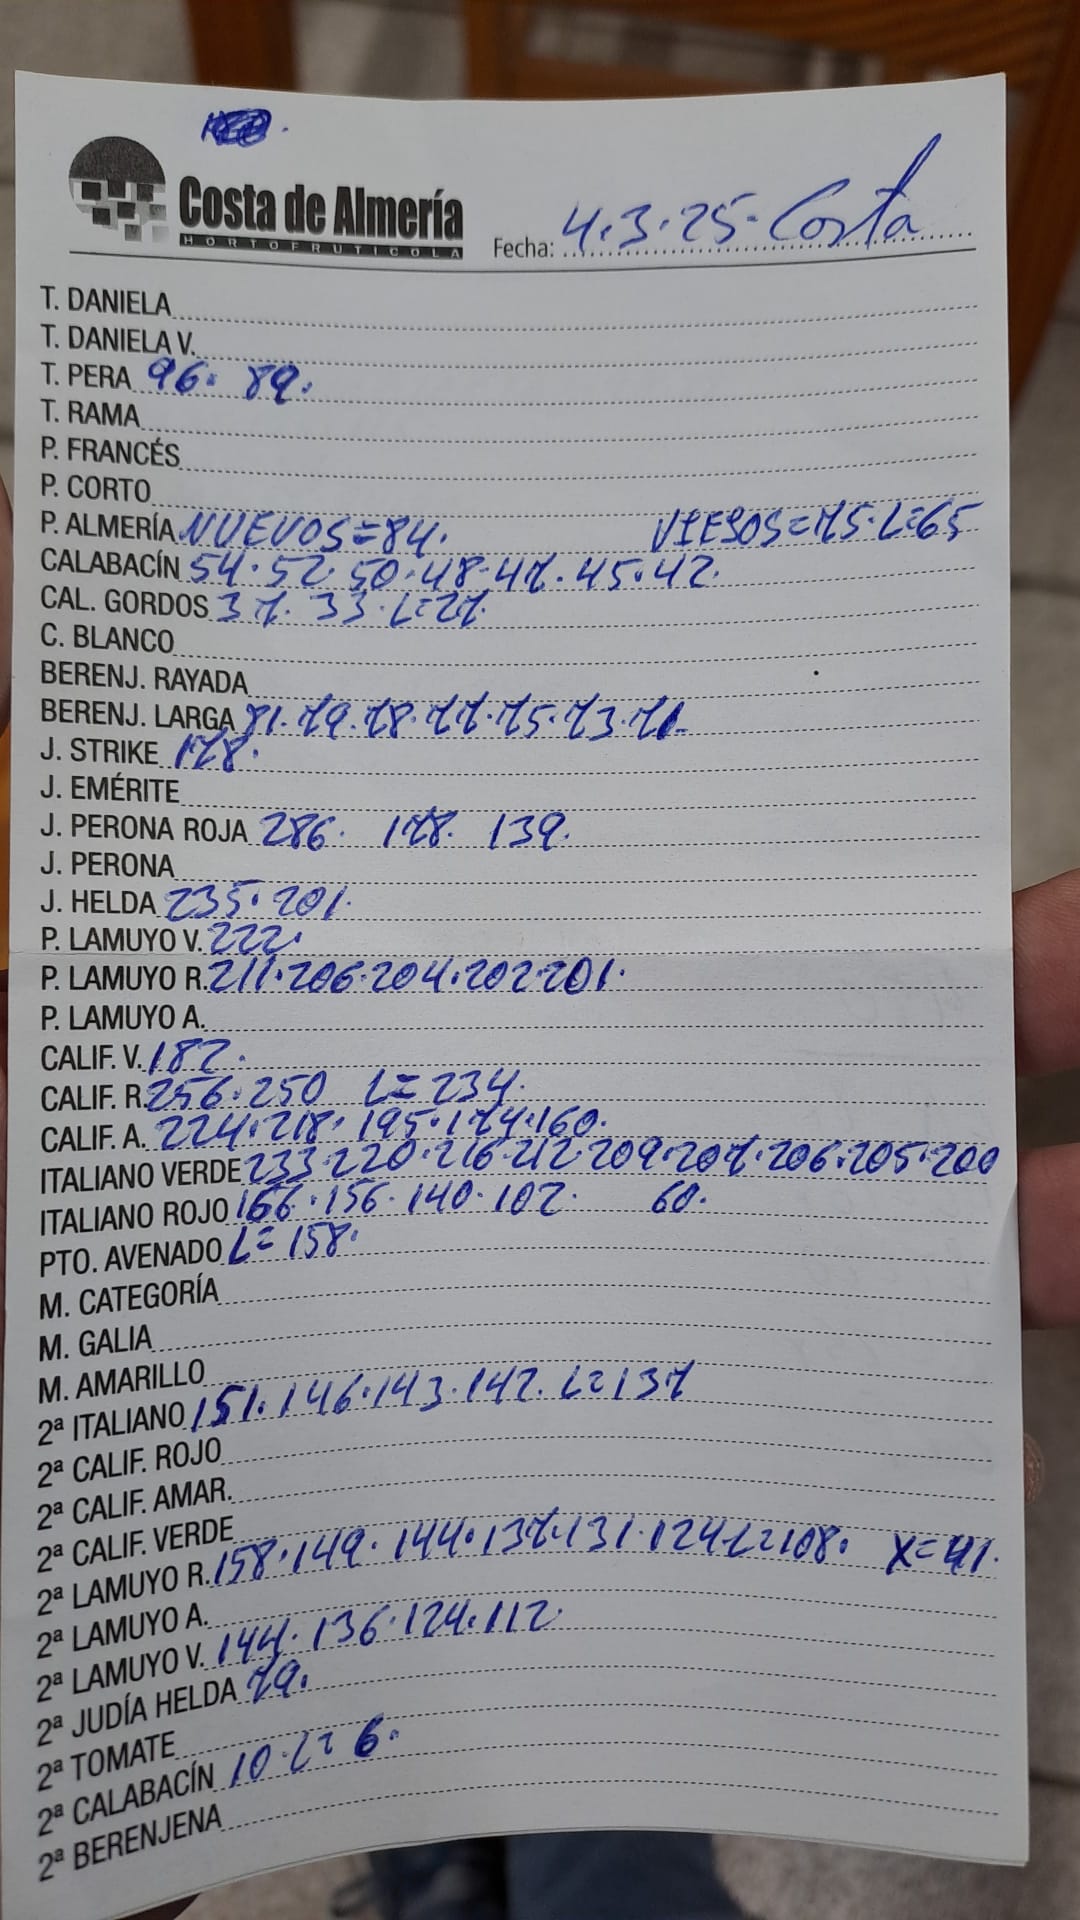 Costa de Almería
HORTOFRUTICOLA
Fecha: 4.3.25. Costa
T. DANIELA
T. DANIELA V.
T. PERA 96. 89.
T. RAMA
P. FRANCÉS
P. CORTO
P. ALMERÍA NUEVOS=84. VIESOS=75. L=65
CALABACÍN 54. 52. 50. 48. 47. 45. 42.
CAL. GORDOS 37. 33. L=27.
C. BLANCO
BERENJ. RAYADA
BERENJ. LARGA 81. 79. 78. 77. 75. 73. 71.
J. STRIKE 178.
J. EMÉRITE
J. PERONA ROJA 286. 178. 139.
J. PERONA
J. HELDA 235. 201.
P. LAMUYO V. 222.
P. LAMUYO R. 211. 206. 204. 202. 201.
P. LAMUYO A.
CALIF. V. 182.
CALIF. R 256. 250 L=234.
CALIF. A. 224. 218. 195. 174. 160.
ITALIANO VERDE 233. 220. 216. 212. 209. 207. 206. 205. 200
ITALIANO ROJO 166. 156. 140. 102. 60.
PTO. AVENADO L=158.
M. CATEGORÍA
M. GALIA
M. AMARILLO
2ª ITALIANO 151. 146. 143. 142. L=137
2ª CALIF. ROJO
2ª CALIF. AMAR.
2ª CALIF. VERDE
2ª LAMUYO R. 158. 149. 144. 137. 131. 124 L=108. X=41.
2ª LAMUYO A.
2ª LAMUYO V. 144. 136. 124. 112.
2ª JUDÍA HELDA 79.
2ª TOMATE
2ª CALABACÍN 10. L=6.
2ª BERENJENA